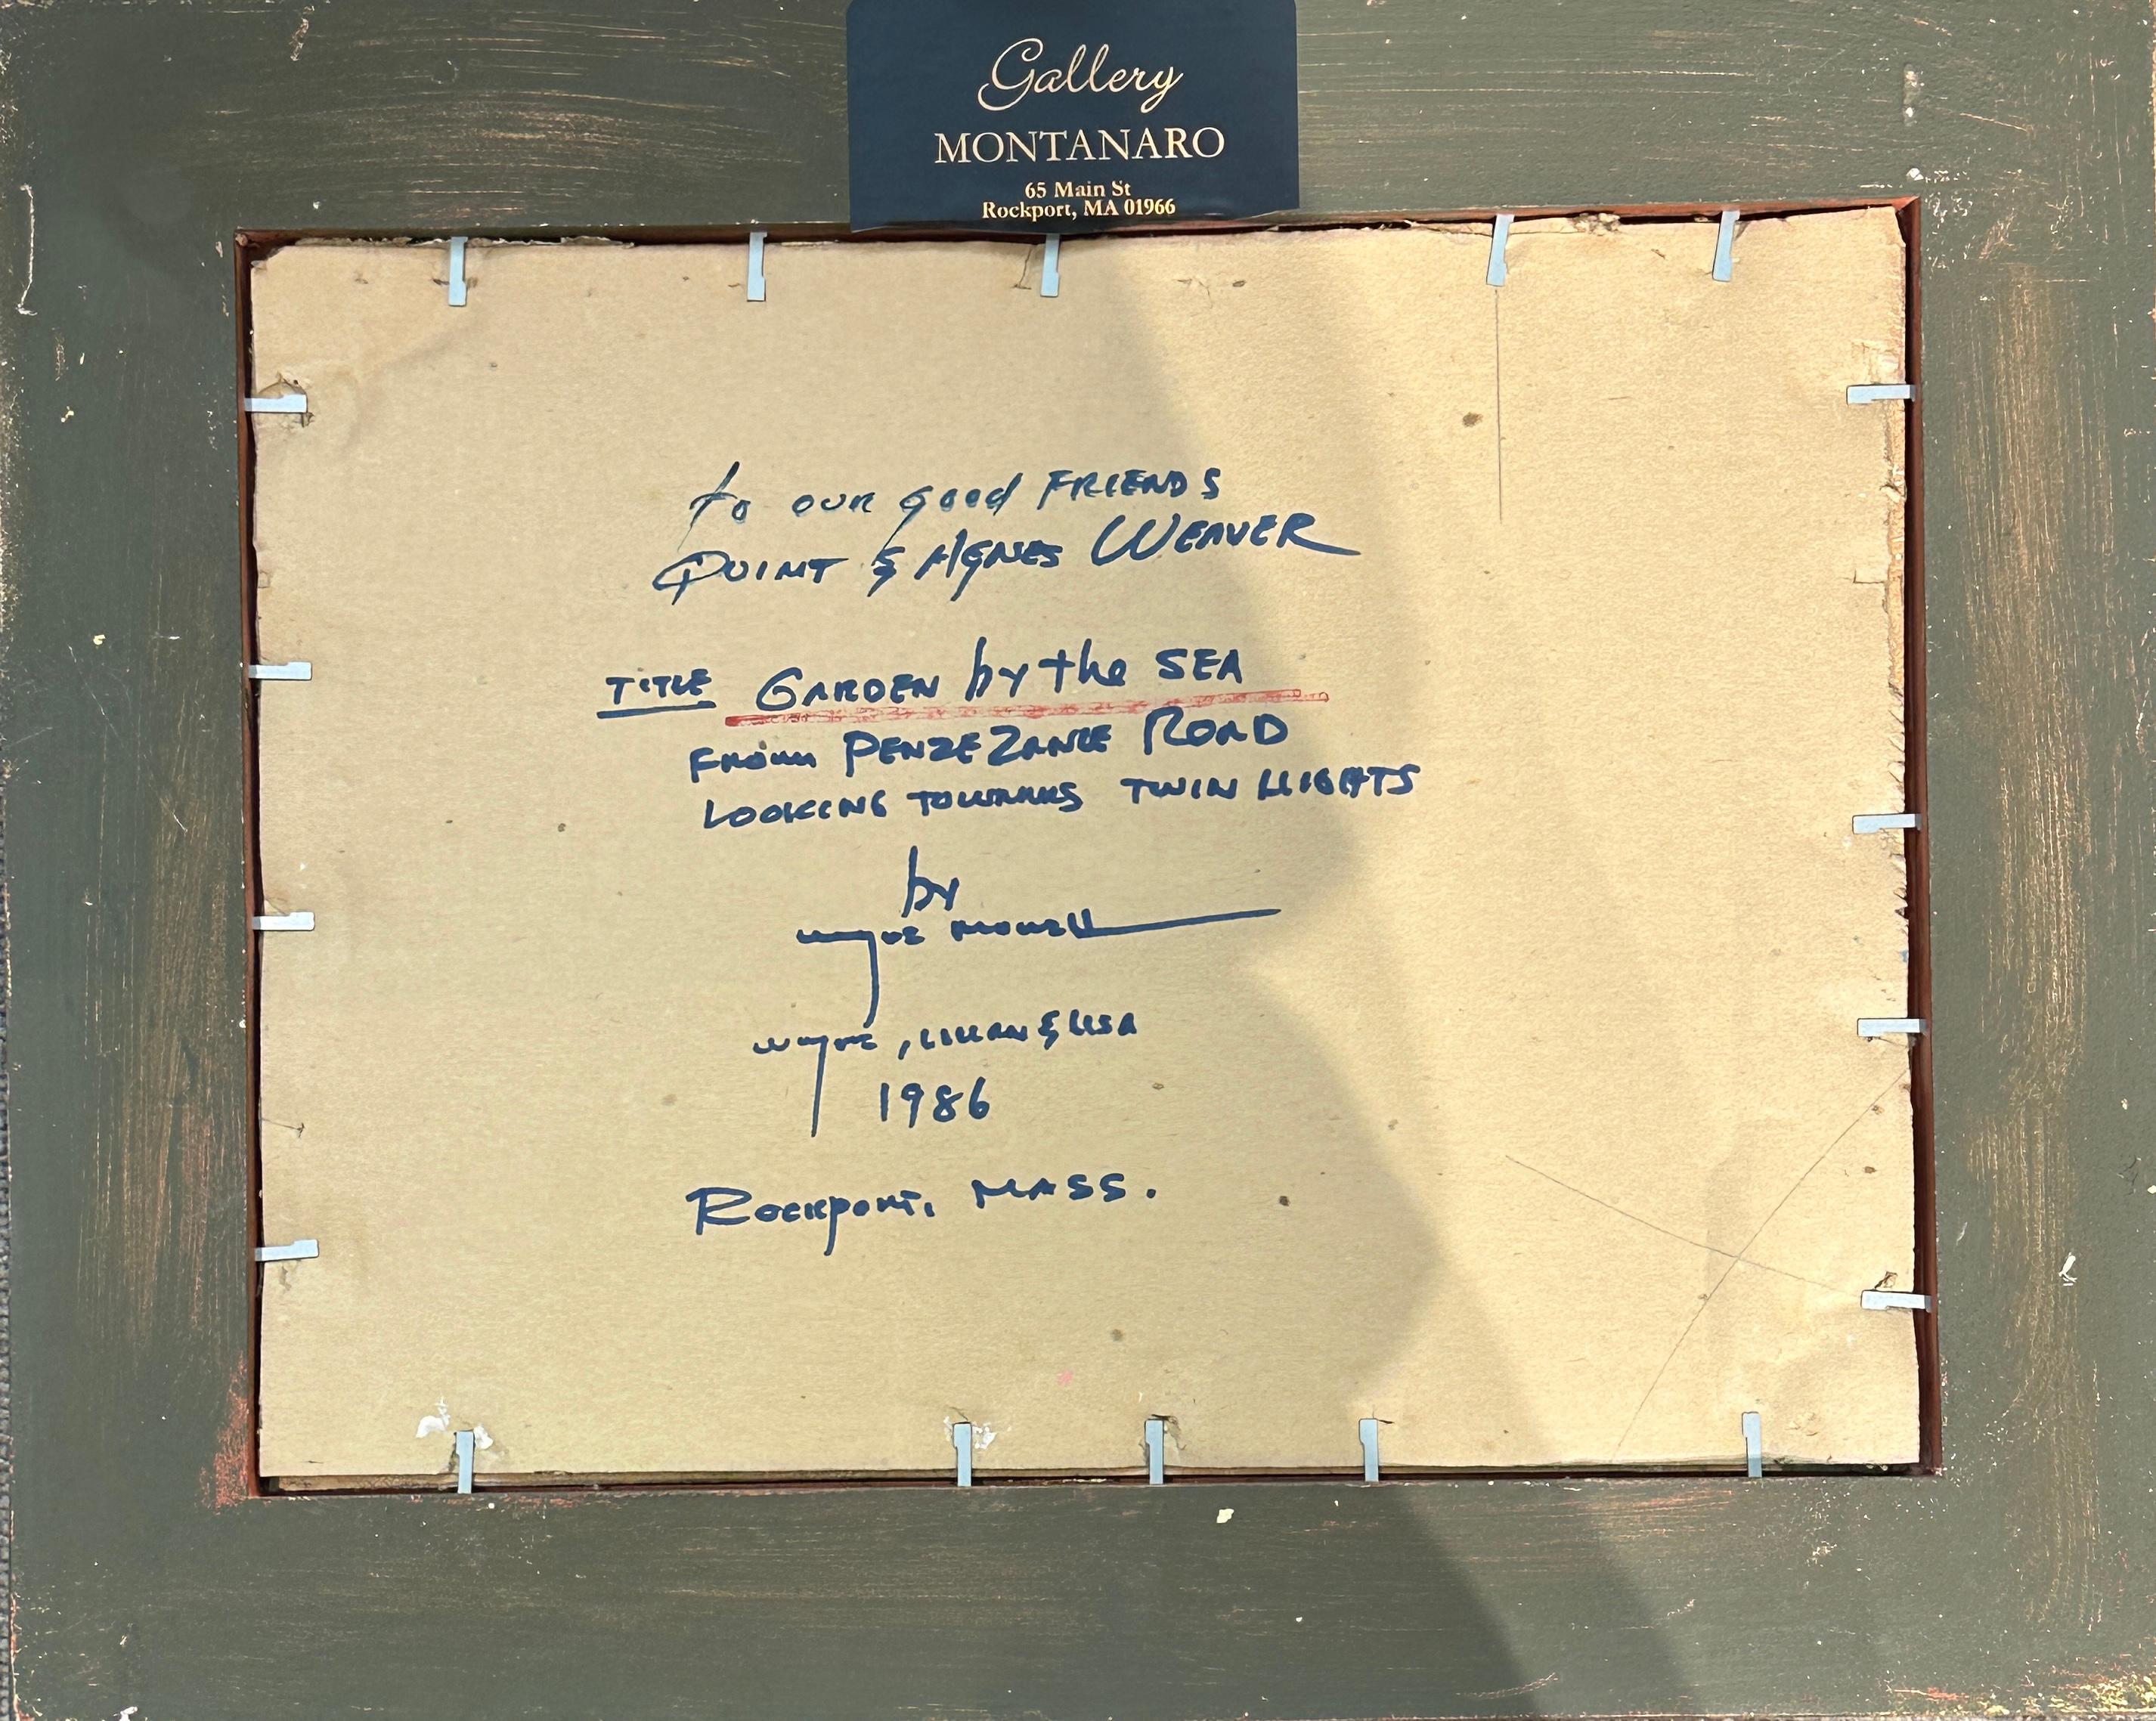 Gallery
MONTANARO
65 Main St
Rockport, MA 01966
to OUR good FRIENDS
QUINT & AGNES WEAVER
TITLE GARDEN by the SEA
FROM PENZEZANCE ROAD
LOOKING TOWARDS TWIN LIGHTS
by
Wayne Morrell
Wayne, LILLIAN & LISA
1986
ROCKPORT, MASS.